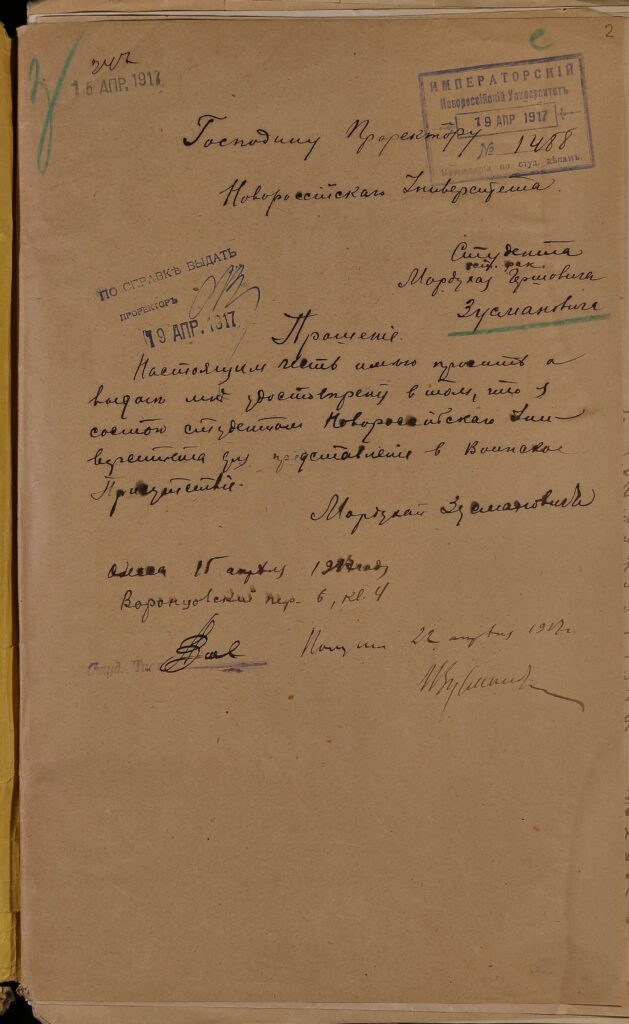 2
15 АПР. 1917
ИМПЕРАТОРСКІЙ
Новороссійскій Университетъ
19 АПР 1917
№ 1488
по студ. дѣламъ.
Господину Проректору
Новороссійскаго Университета.
Студента
ест. фак.
Мордухая Гершовича
Зусмановича
ПО СПРАВКѢ ВЫДАТЬ
ПРОРЕКТОРЪ
19 АПР. 1917
Прошеніе.
Настоящим честь имею просить о
выдаче мнѣ удостоверен в том, что я
состою студентом Новороссійскаго Уни-
верситета для представленія в Воинское
Присутствіе.
Мордухай Зусманович
Одесса 15 апреля 1917 года
Воронцовский пер. 6, кв. 4
Студ.
Получил 22 апреля 1917 г.